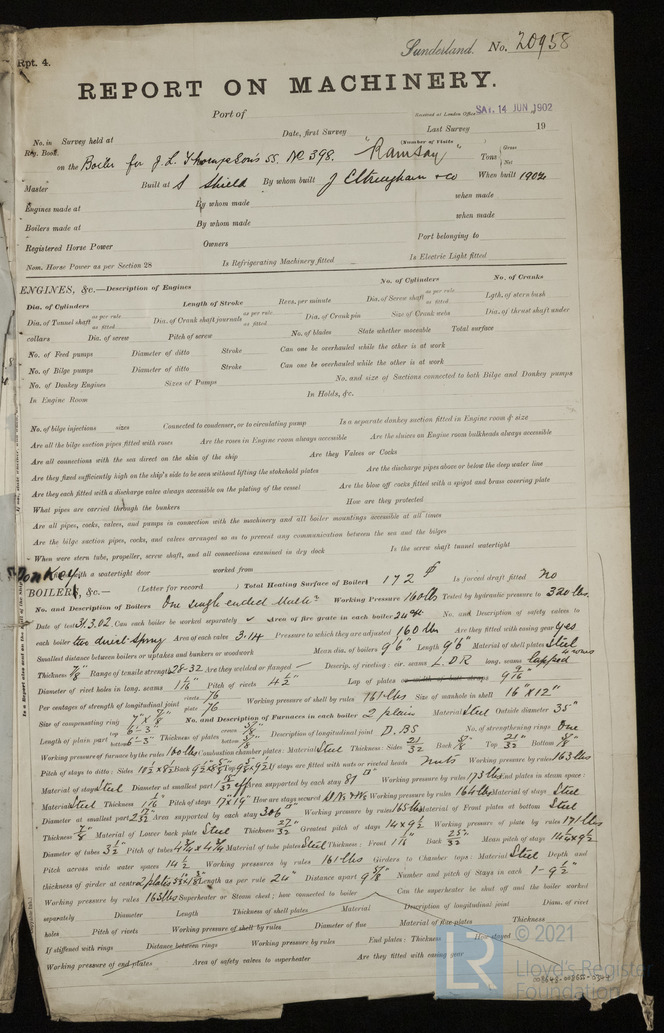 Rpt. 4.
Sunderland. No. 20958
REPORT ON MACHINERY.
Port of
Received at London Office SAT. 14 JUN 1902
No. in Survey held at Date, first Survey Last Survey 19
Reg. Book. (Number of Visits)
on the Boiler for J. L. Thompson's SS. No 398. "Ramsay" Tons Gross Net
Master Built at S Shield By whom built J Eltringham & co When built 1902
Engines made at By whom made when made
Boilers made at By whom made when made
Registered Horse Power Owners Port belonging to
Nom. Horse Power as per Section 28 Is Refrigerating Machinery fitted Is Electric Light fitted
ENGINES, &c.—Description of Engines No. of Cylinders No. of Cranks
Dia. of Cylinders Length of Stroke Revs. per minute Dia. of Screw shaft as per rule as fitted Lgth. of stern bush
Dia. of Tunnel shaft as per rule as fitted Dia. of Crank shaft journals as per rule as fitted Dia. of Crank pin Size of Crank webs Dia. of thrust shaft under
collars Dia. of screw Pitch of screw No. of blades State whether moveable Total surface
No. of Feed pumps Diameter of ditto Stroke Can one be overhauled while the other is at work
No. of Bilge pumps Diameter of ditto Stroke Can one be overhauled while the other is at work
No. of Donkey Engines Sizes of Pumps No. and size of Suctions connected to both Bilge and Donkey pumps
In Engine Room In Holds, &c.
No. of bilge injections sizes Connected to condenser, or to circulating pump Is a separate donkey suction fitted in Engine room & size
Are all the bilge suction pipes fitted with roses Are the roses in Engine room always accessible Are the sluices on Engine room bulkheads always accessible
Are all connections with the sea direct on the skin of the ship Are they Valves or Cocks
Are they fixed sufficiently high on the ship's side to be seen without lifting the stokehold plates Are the discharge pipes above or below the deep water line
Are they each fitted with a discharge valve always accessible on the plating of the vessel Are the blow off cocks fitted with a spigot and brass covering plate
What pipes are carried through the bunkers How are they protected
Are all pipes, cocks, valves, and pumps in connection with the machinery and all boiler mountings accessible at all times
Are the bilge suction pipes, cocks, and valves arranged so as to prevent any communication between the sea and the bilges
When were stern tube, propeller, screw shaft, and all connections examined in dry dock Is the screw shaft tunnel watertight
with a watertight door worked from
Donkey
BOILERS, &c.— (Letter for record ) Total Heating Surface of Boilers 172 Is forced draft fitted No
No. and Description of Boilers One single ended Working Pressure 160 lbs Tested by hydraulic pressure to 320 lbs.
Date of test 31.3.02 Can each boiler be worked separately Area of fire grate in each boiler No. and Description of safety valves to
each boiler two direct Spring Area of each valve 3.14 Pressure to which they are adjusted 160 lbs Are they fitted with easing gear yes
Smallest distance between boilers or uptakes and bunkers or woodwork Mean dia. of boilers 9'6" Length 9'6" Material of shell plates Steel
Thickness 7/8" Range of tensile strength 28-32 Are they welded or flanged — Descrip. of riveting: cir. seams L.D.R long. seams lapped
Diameter of rivet holes in long. seams 1 1/16" Pitch of rivets 4 1/2" Lap of plates or width of butt straps 9 9/16"
Per centages of strength of longitudinal joint rivets 76 plate 76 Working pressure of shell by rules 161 lbs Size of manhole in shell 16"X12"
Size of compensating ring 7"x7/8" No. and Description of Furnaces in each boiler 2 plain Material Steel Outside diameter 35"
Length of plain part top 6'-3" bottom 6'-3" Thickness of plates crown bottom Description of longitudinal joint D.BS No. of strengthening rings One
Working pressure of furnace by the rules 160 lbs Combustion chamber plates: Material Steel Thickness: Sides 21/32 Back 5/8" Top 21/32" Bottom
Pitch of stays to ditto: Sides Back Top If stays are fitted with nuts or riveted heads nuts Working pressure by rules 163 lbs
Material of stays Steel Diameter at smallest part Area supported by each stay Working pressure by rules 173 lbs End plates in steam space:
Material Steel Thickness 1 1/16" Pitch of stays 17x19" How are stays secured Working pressure by rules 164 lbs Material of stays Steel
Diameter at smallest part Area supported by each stay 306" Working pressure by rules 165 lbs Material of Front plates at bottom Steel
Thickness 7/8" Material of Lower back plate Steel Thickness 27/32" Greatest pitch of stays 14x9 1/2 Working pressure of plate by rules 171 lbs
Diameter of tubes 3 1/2" Pitch of tubes 4 3/4x4 3/4 Material of tube plates Steel Thickness: Front Back 25/32" Mean pitch of stays
Pitch across wide water spaces 14 1/2 Working pressures by rules 161 lbs Girders to Chamber tops: Material Steel Depth and
thickness of girder at centre Length as per rule 24" Distance apart Number and pitch of Stays in each 1-9 1/2"
Working pressure by rules 163 lbs Superheater or Steam chest; how connected to boiler Can the superheater be shut off and the boiler worked
separately Diameter Length Thickness of shell plates Material Description of longitudinal joint Diam. of rivet
holes Pitch of rivets Working pressure of shell by rules Diameter of flue Material of flue plates Thickness
If stiffened with rings Distance between rings Working pressure by rules End plates: Thickness How stayed
Working pressure of end plates Area of safety valves to superheater Are they fitted with easing gear
LR © 2021
Lloyd's Register
Foundation